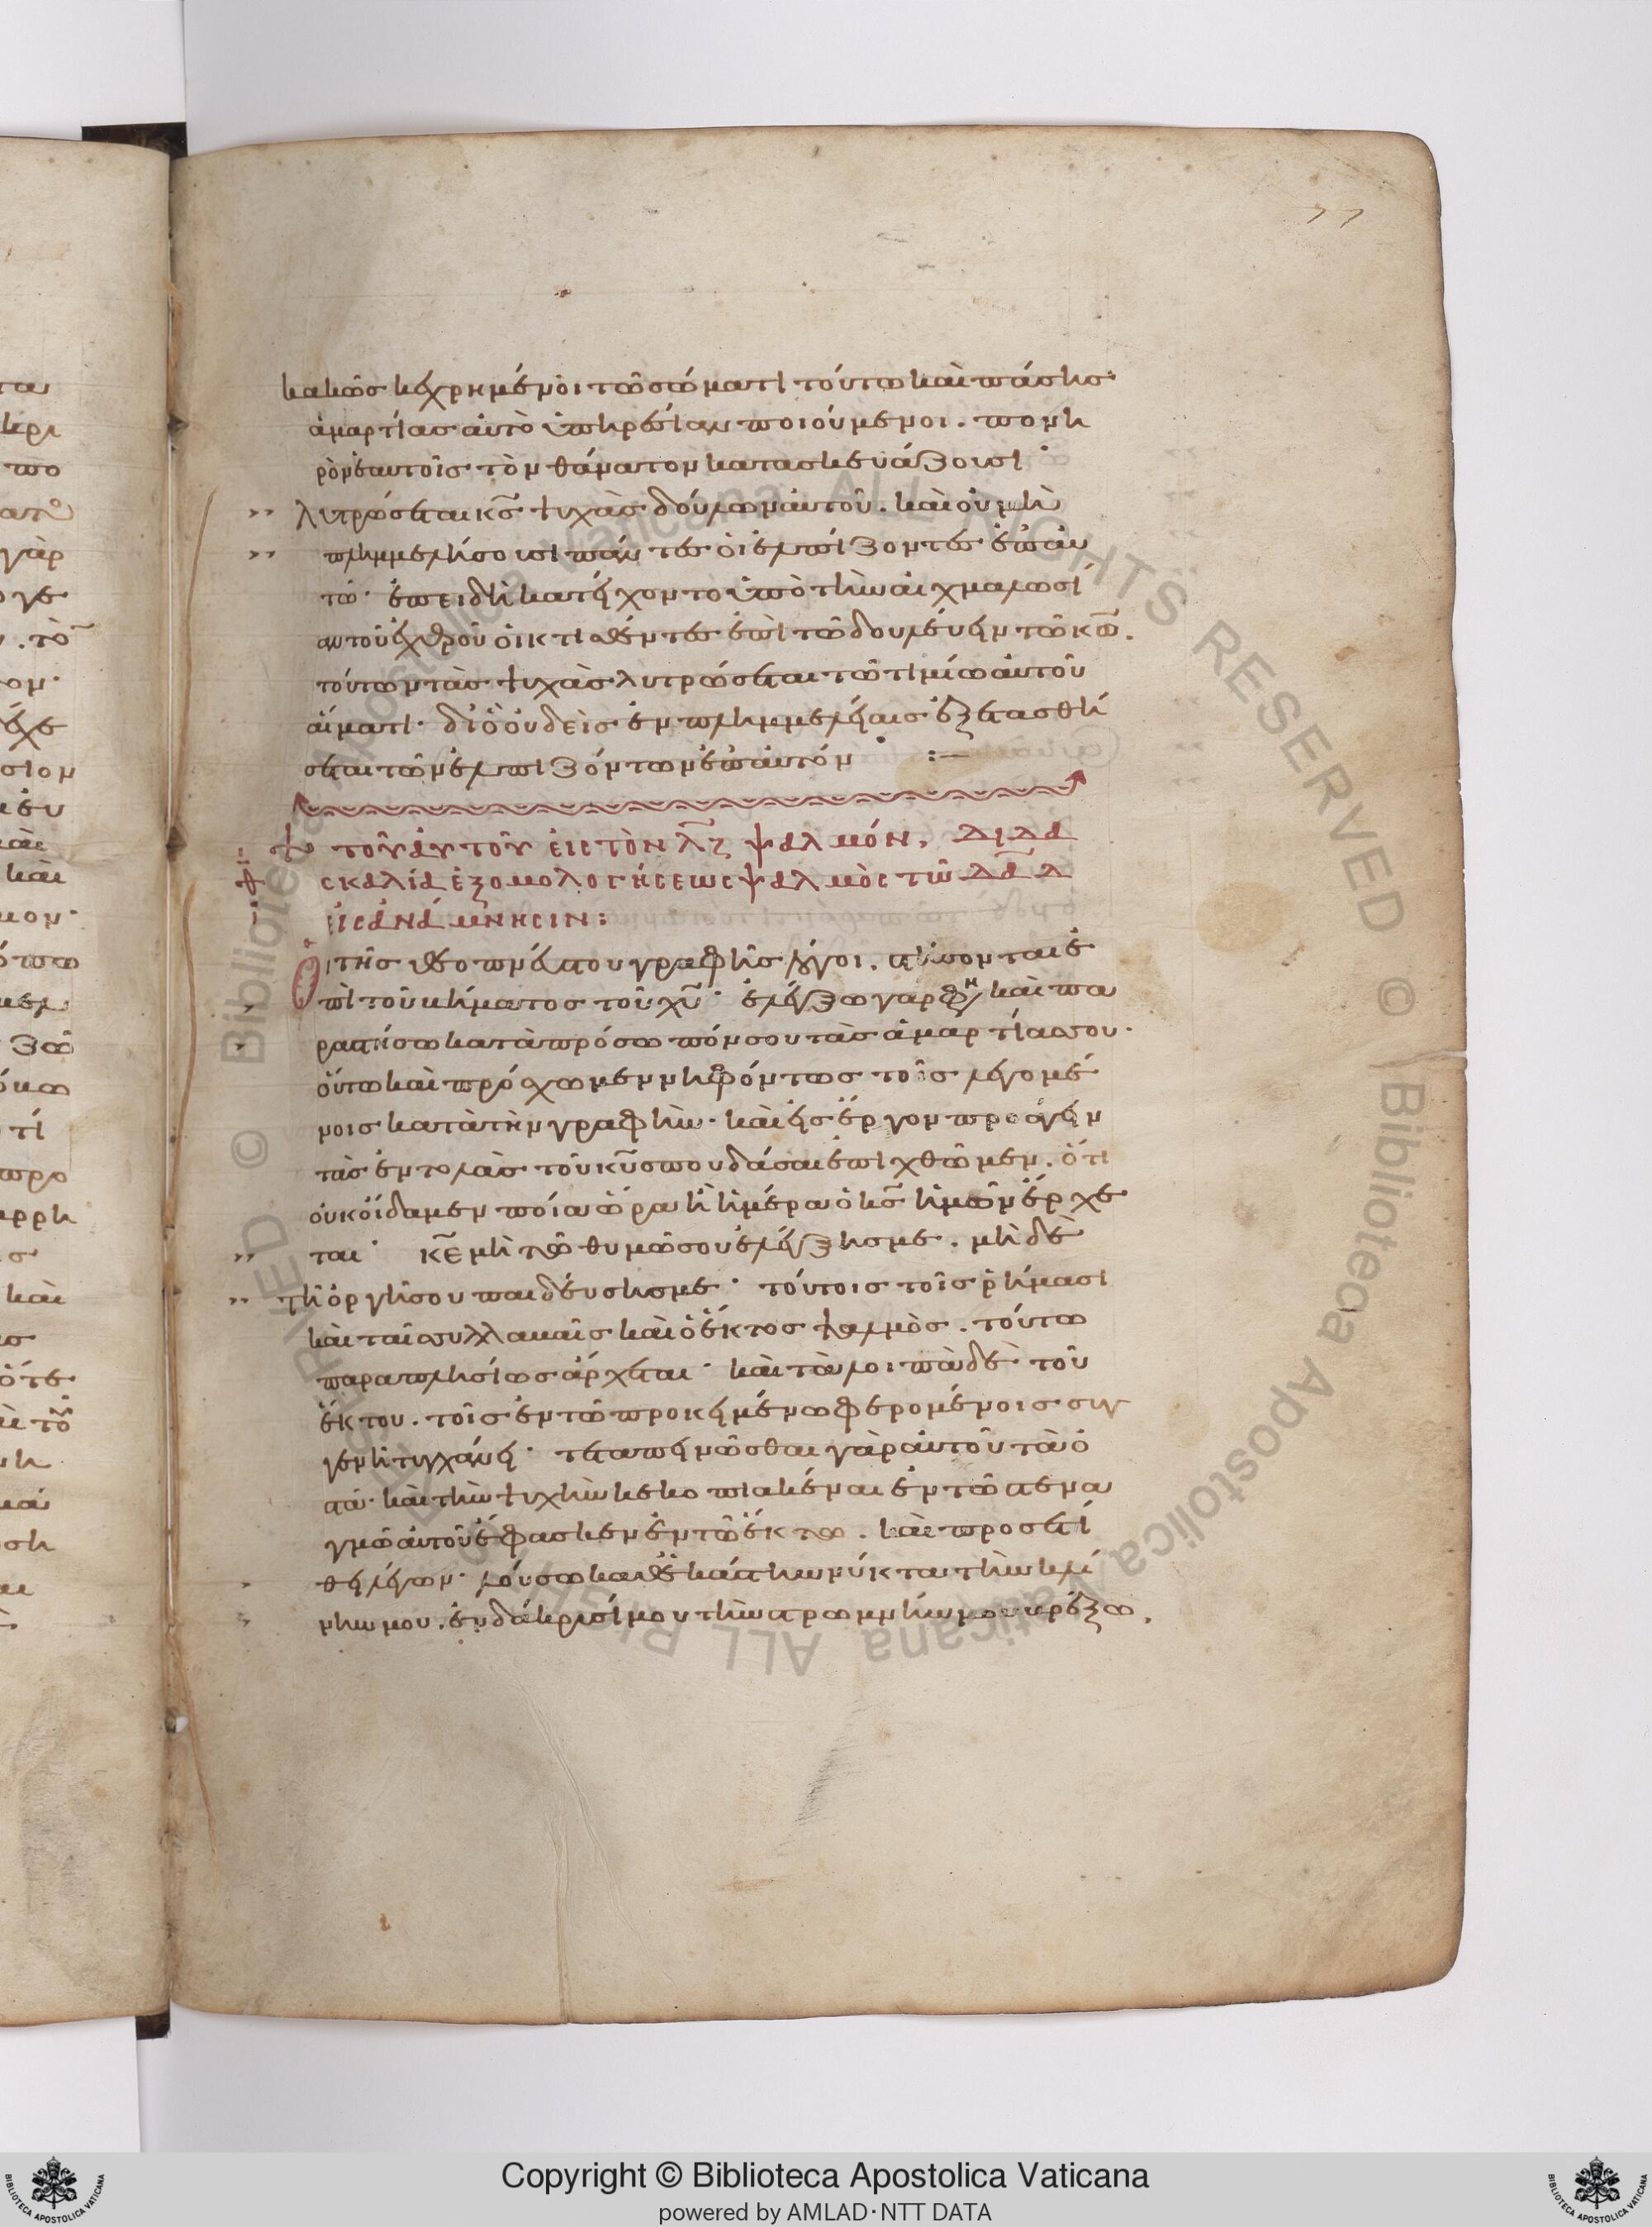 77
κακῶς κεχρημένοι τῶ σώματι τούτω καὶ πάσης
ἁμαρτίας αὐτὸ ὑπηρεσίαν ποιούμενοι. πονη
ρὸν ἑαυτοῖς τὸν θάνατον κατασκευάζουσι·
λυτρώσεται κ̅ς̅ ψυχὰς δούλων αὐτοῦ. καὶ οὐ μὴ
πλημμελήσουσι πάντες οἱ ἐλπίζοντες ἐπ αυ
τώ· ἐπειδὴ κατείχοντο ὑπὸ τὴν αἰχμαλωσί
αν τοῦ ἐχθροῦ οἱ κτισθέντες ἐπὶ τῶ δουλεύειν τῶ κ̅ω̅.
τούτων τὰς ψυχὰς λυτρώσεται τῶ τιμίω αὐτοῦ
αἵματι· διὸ οὐδεὶς ἐν πλημμελείαις ἐξετασθή
σεται τῶν ἐλπιζόντων ἐπ αὐτόν · :—
ψ τοῦ αὐτοῦ εἰς τὸν λ̅ζ̅ ψαλμόν, διδα
σκαλία ἐξομολογήσεως ψαλμὸς τῶ δ̅α̅δ̅
εἰς ἀνάμνησιν:
Οἱ τῆς θεοπνεύστου γραφῆς λόγοι. αὐ πονται ἐ
πὶ τοῦ κλήματος τοῦ χ̅υ̅· ἐλέγξω γάρ φη καὶ πα
ραστήσω κατὰ πρόσωπόν σου τὰς ἁμαρτίας σου·
οὕτω καὶ πρόσχωμεν νηφόντως τοῖς λεγομέ
νοις κατὰ τὴν γραφήν· καὶ εἰς ἔργον προαγεῖν
τὰς ἐντολὰς τοῦ κ̅υ̅ σπουδάσαι ἐπιχθῶμεν. ὅτι
οὐκ οἴδαμεν ποία ὥρα ἢ ἡμέρα ὁ κ̅ς̅ ἡμῶν ἔρχε
ται· κ̅ε̅ μὴ τῶ θυμῶ σου ἐλέγξης με. μὴ δὲ
τῆ ὀργῆ σου παιδεύσης με· τούτοις τοῖς ῥήμασι
καὶ ταῖς συλλαβαῖς καὶ ὁ ἕκτος ψαλμὸς. τούτω
παραπλησίως ἄρχεται· καὶ τὰ λοιπὰ δὲ τοῦ
ἕκτου. τοῖς ἐν τῶ προκειμένω φερομένοις συγ
γενῆ τυγχάνει· τεταπεινῶσθαι γὰρ αὐτοῦ τὰ ὀ
στά· καὶ τὴν ψυχὴν κεκοπιακέναι ἐν τῶ στενα
γμῶ αὐτοῦ ἔφασκεν ἐν τῶ ἕκτω. καὶ προσετί
θει λέγων· λούσω καθ ἑκάστην νύκτα τὴν κλί
νην μου. ἐν δάκρυσί μου τὴν στρωμνήν μου βρέξω.
Copyright © Biblioteca Apostolica Vaticana
powered by AMLAD·NTT DATA